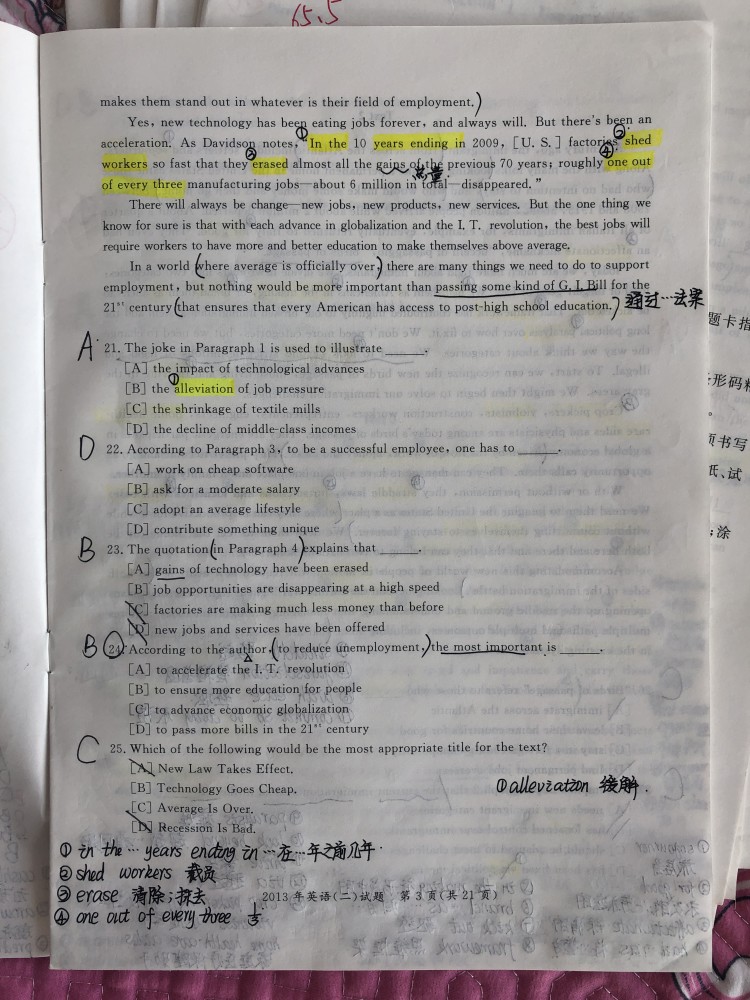 65.5
makes them stand out in whatever is their field of employment.)
Yes, new technology has been eating jobs forever, and always will. But there's been an
① ②
acceleration. As Davidson notes, "In the 10 years ending in 2009, [U. S.] factories shed
③ ④
workers so fast that they erased almost all the gains of the previous 70 years; roughly one out
总量.
of every three manufacturing jobs—about 6 million in total—disappeared."
There will always be change—new jobs, new products, new services. But the one thing we
know for sure is that with each advance in globalization and the I. T. revolution, the best jobs will
require workers to have more and better education to make themselves above average.
In a world (where average is officially over,) there are many things we need to do to support
employment, but nothing would be more important than passing some kind of G. I. Bill for the
21st century (that ensures that every American has access to post-high school education.) 通过…法案
题卡指
A 21. The joke in Paragraph 1 is used to illustrate ______.
[A] the impact of technological advances
① [B] the alleviation of job pressure
[C] the shrinkage of textile mills
[D] the decline of middle-class incomes
D 22. According to Paragraph 3, to be a successful employee, one has to ______.
[A] work on cheap software
[B] ask for a moderate salary
[C] adopt an average lifestyle
[D] contribute something unique
B 23. The quotation (in Paragraph 4) explains that ______.
[A] gains of technology have been erased
[B] job opportunities are disappearing at a high speed
[C] factories are making much less money than before
[D] new jobs and services have been offered
B 24. According to the author, (to reduce unemployment,) the most important is ______.
[A] to accelerate the I. T. revolution
[B] to ensure more education for people
[C] to advance economic globalization
[D] to pass more bills in the 21st century
C 25. Which of the following would be the most appropriate title for the text?
[A] New Law Takes Effect.
[B] Technology Goes Cheap.
① alleviation 缓解.
[C] Average Is Over.
[D] Recession Is Bad.
① in the … years ending in … 在…年之前几年.
② shed workers 裁员
③ erase 清除;擦去
2013年英语(二)试题 第3页(共21页)
④ one out of every three 1/3
条形码粘
。
项书写
纸、试
;涂